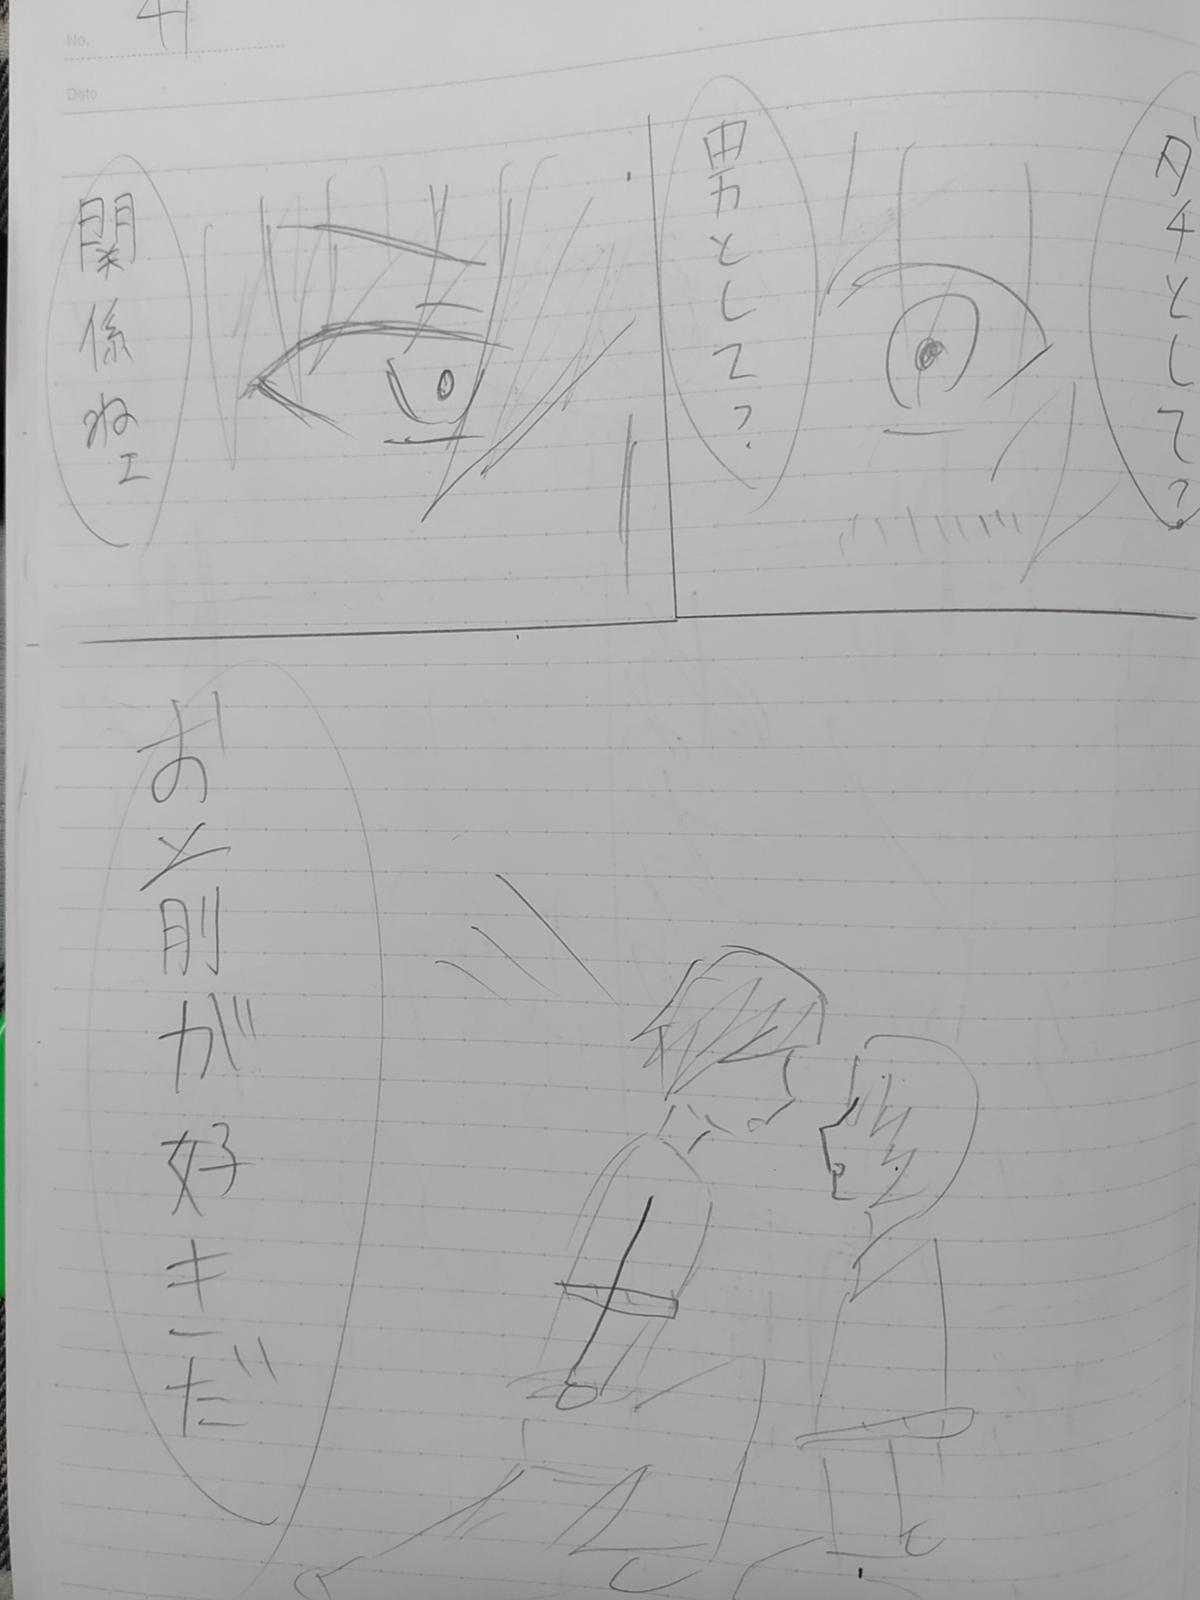 No.
Date
ダチとして?
男として?
関係ねェ
お前が好きだ